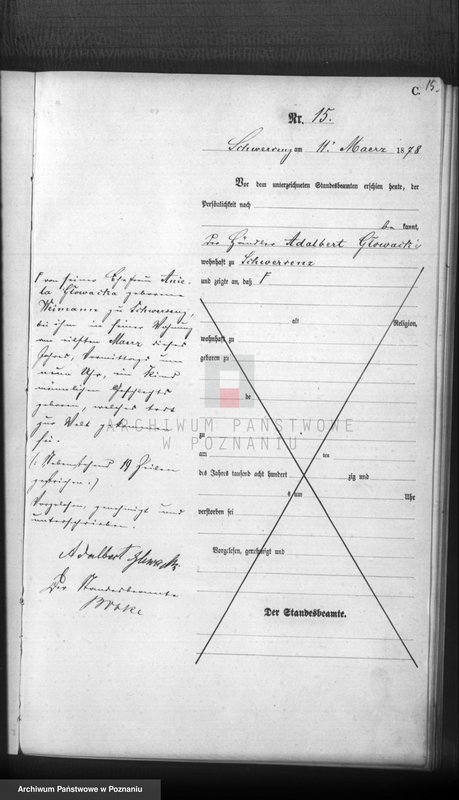 C. 15.
Nr. 15.
Schwersenz am 11' Maerz 1878
Vor dem unterzeichneten Standesbeamten erschien heute, der
Persönlichkeit nach
be kannt,
der Händler Adalbert Glowacki
wohnhaft zu Schwersenz
und zeigte an, daß
von seiner Ehefrau Anie-
la Glowacka geborene
Neimann zu Schwersenz,
bei ihm in seiner Wohnung
am elften Maerz dieses
Jahres, Vormittags um
neun Uhr, ein Kind
männlichen Geschlechts
geboren, welches todt
zur Welt gekommen
sei.
(: Nebenstehend 19 Zeilen
gestrichen :)
Vorgelesen, genehmigt und
unterschrieben.
Adalbert Glowacki
Der Standesbeamte
alt Religion,
wohnhaft zu
geboren zu
de
zu
am ten
des Jahres tausend acht hundert zig und
um Uhr
verstorben sei
Vorgelesen, genehmigt und
Der Standesbeamte.
ARCHIWUM PAŃSTWOWE
W POZNANIU
Archiwum Państwowe w Poznaniu